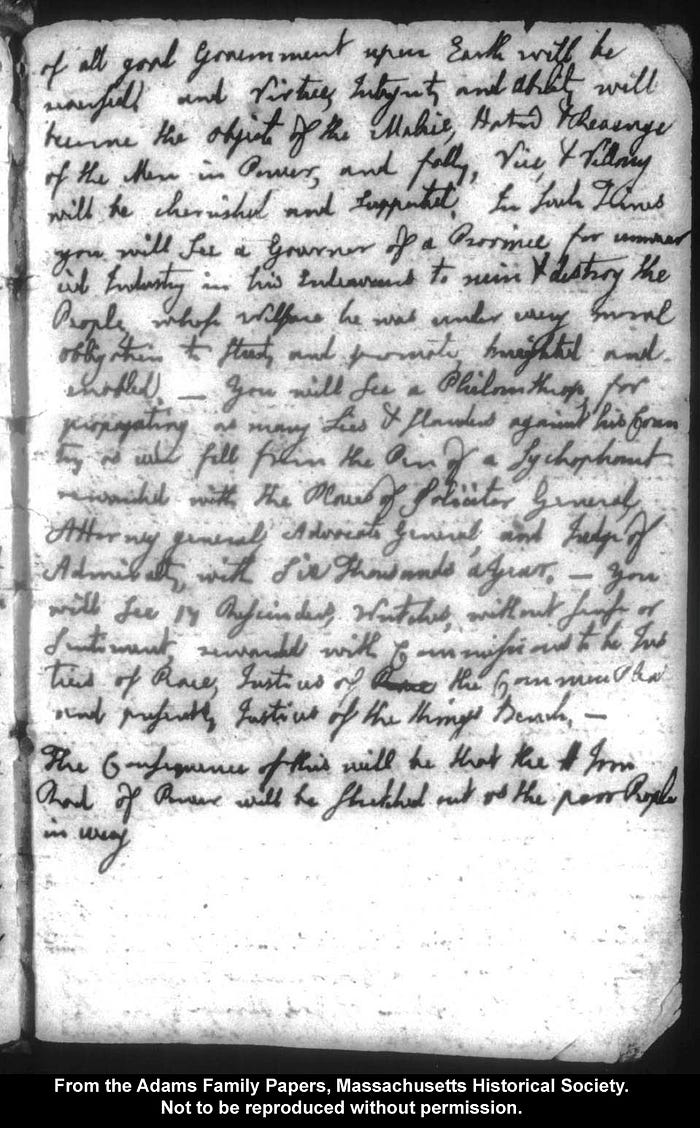 of all good Government upon Earth will be
reversed, and Virtue, Integrity and Ability will
become the objects of the Malice, Hatred & Revenge
of the Men in Power, and folly, Vice, & Villany
will be cherished and supported. In such Times
you will see a Governor of a Province, for unwear
ied Industry in his Endeavours to ruin & destroy the
People, whose Welfare he was under every moral
obligation to study and promote, knighted and
enobled. — You will see a Philanthrop, for
propagating as many Lies & slanders against his Coun
try as ever fell from the Pen of a Sychophant
rewarded with the Places of Solicitor General,
Attorney general, Advocate General, and Judge of
Admiralty, with Six Thousands a Year. — You
will see 17 Rescinders, Wretches, without sense or
Sentiment, rewarded with Commissions to be Jus
tices of Peace, Justices of Peace the Common Pleas
and presently Justices of the Kings Bench. —
The Consequence of this will be that the Iron
Rod of Power will be stretched out the poor People
in every